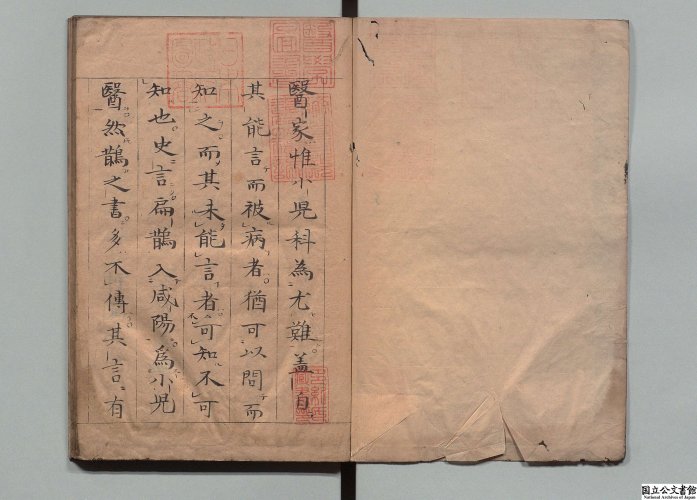 醫家惟小児科為尤難盖自
其能言而被病者猶可以問而
知之而其未能言者可知不可
知也史言扁鵲入咸陽爲小児
醫然鵲之書多不傳其言有
国立公文書館
National Archives of Japan